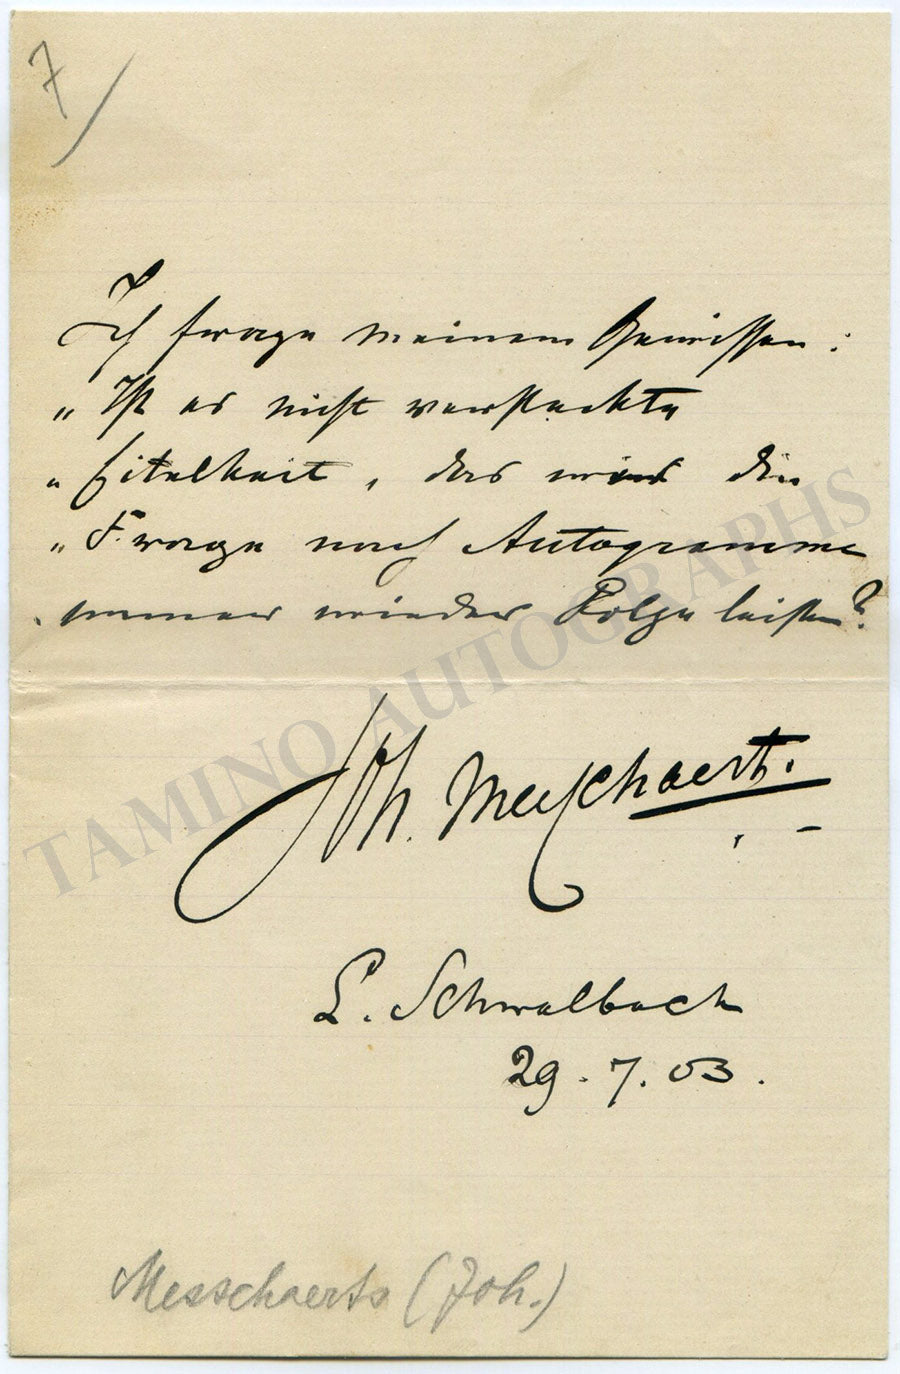 7/
Ich frage meinem Gewissen:
„Ist es nicht versteckte
„Eitelkeit, das wir die
„Frage nach Autogramme
immer wieder Folge leisten?
Joh. Messchaert.
L. Schwalbach
29.7.03.
Messchaerts (Joh.)
TAMINO AUTOGRAPHS